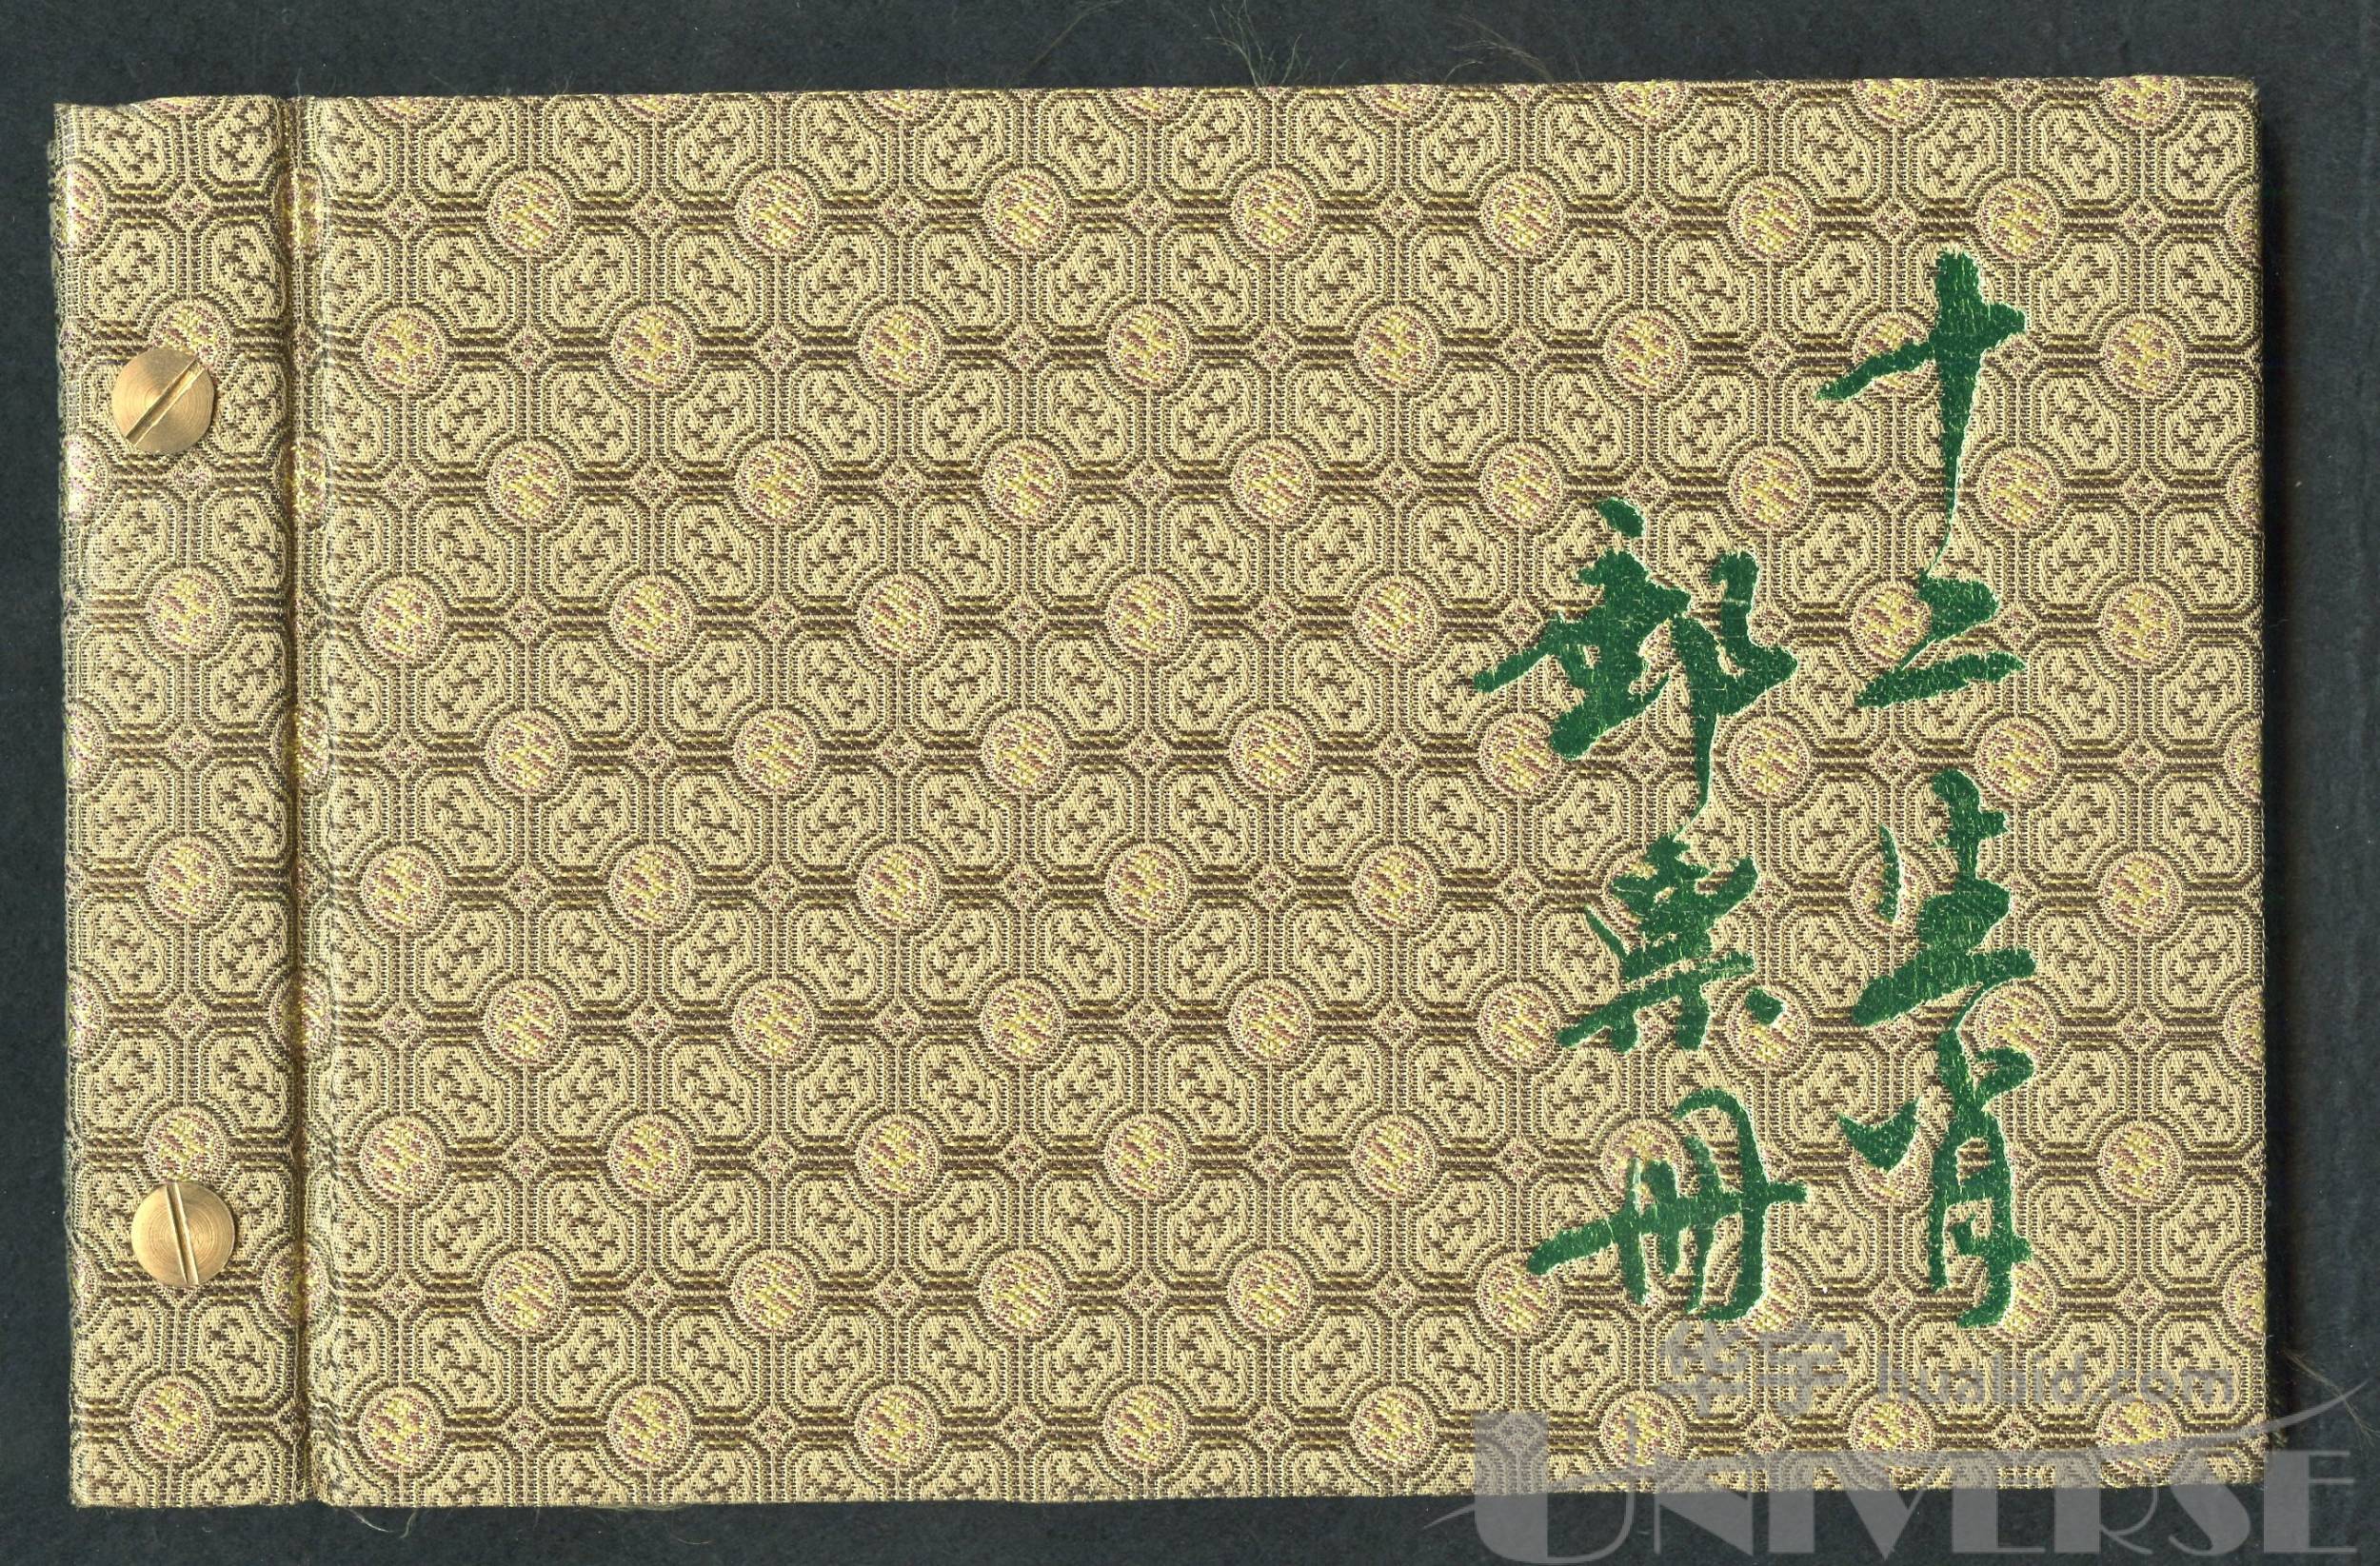 十二生肖
郵票册
华宇 huabid.com
UNIVERSE